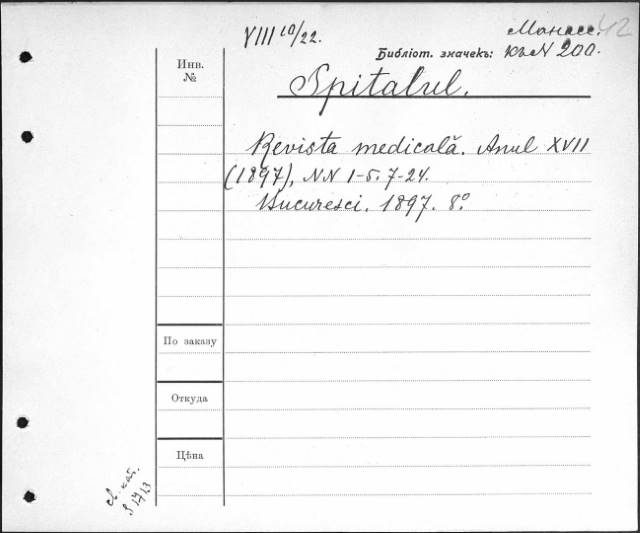 VIII 10/22.
Монасс. 42
Библіот. значекъ: къ N 200.
Инв. №
Spitalul.
Revista medicală. Anul XVII
(1897), NN 1-5. 7-24.
Bucuresci. 1897. 8°
По заказу
Откуда
Цѣна
кат.